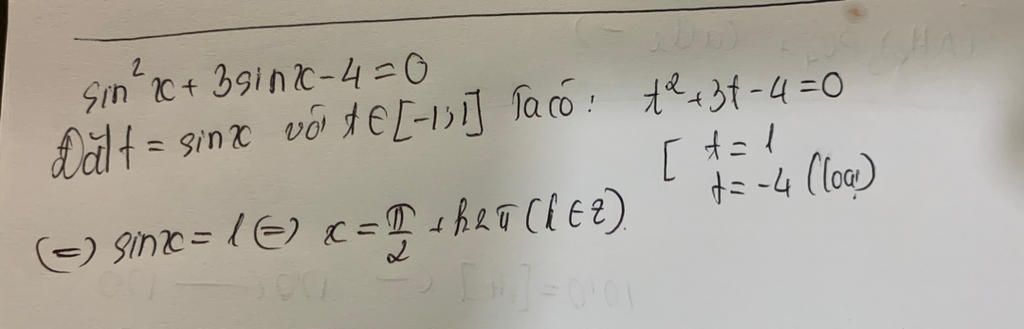 sin²x + 3sinx - 4 = 0
Đặt t = sinx với t ∈ [-1;1] Ta có: t² + 3t - 4 = 0
[ t = 1
t = -4 (loại)
(=) sinx = 1 (=) x = π/2 + k2π (k ∈ Z).